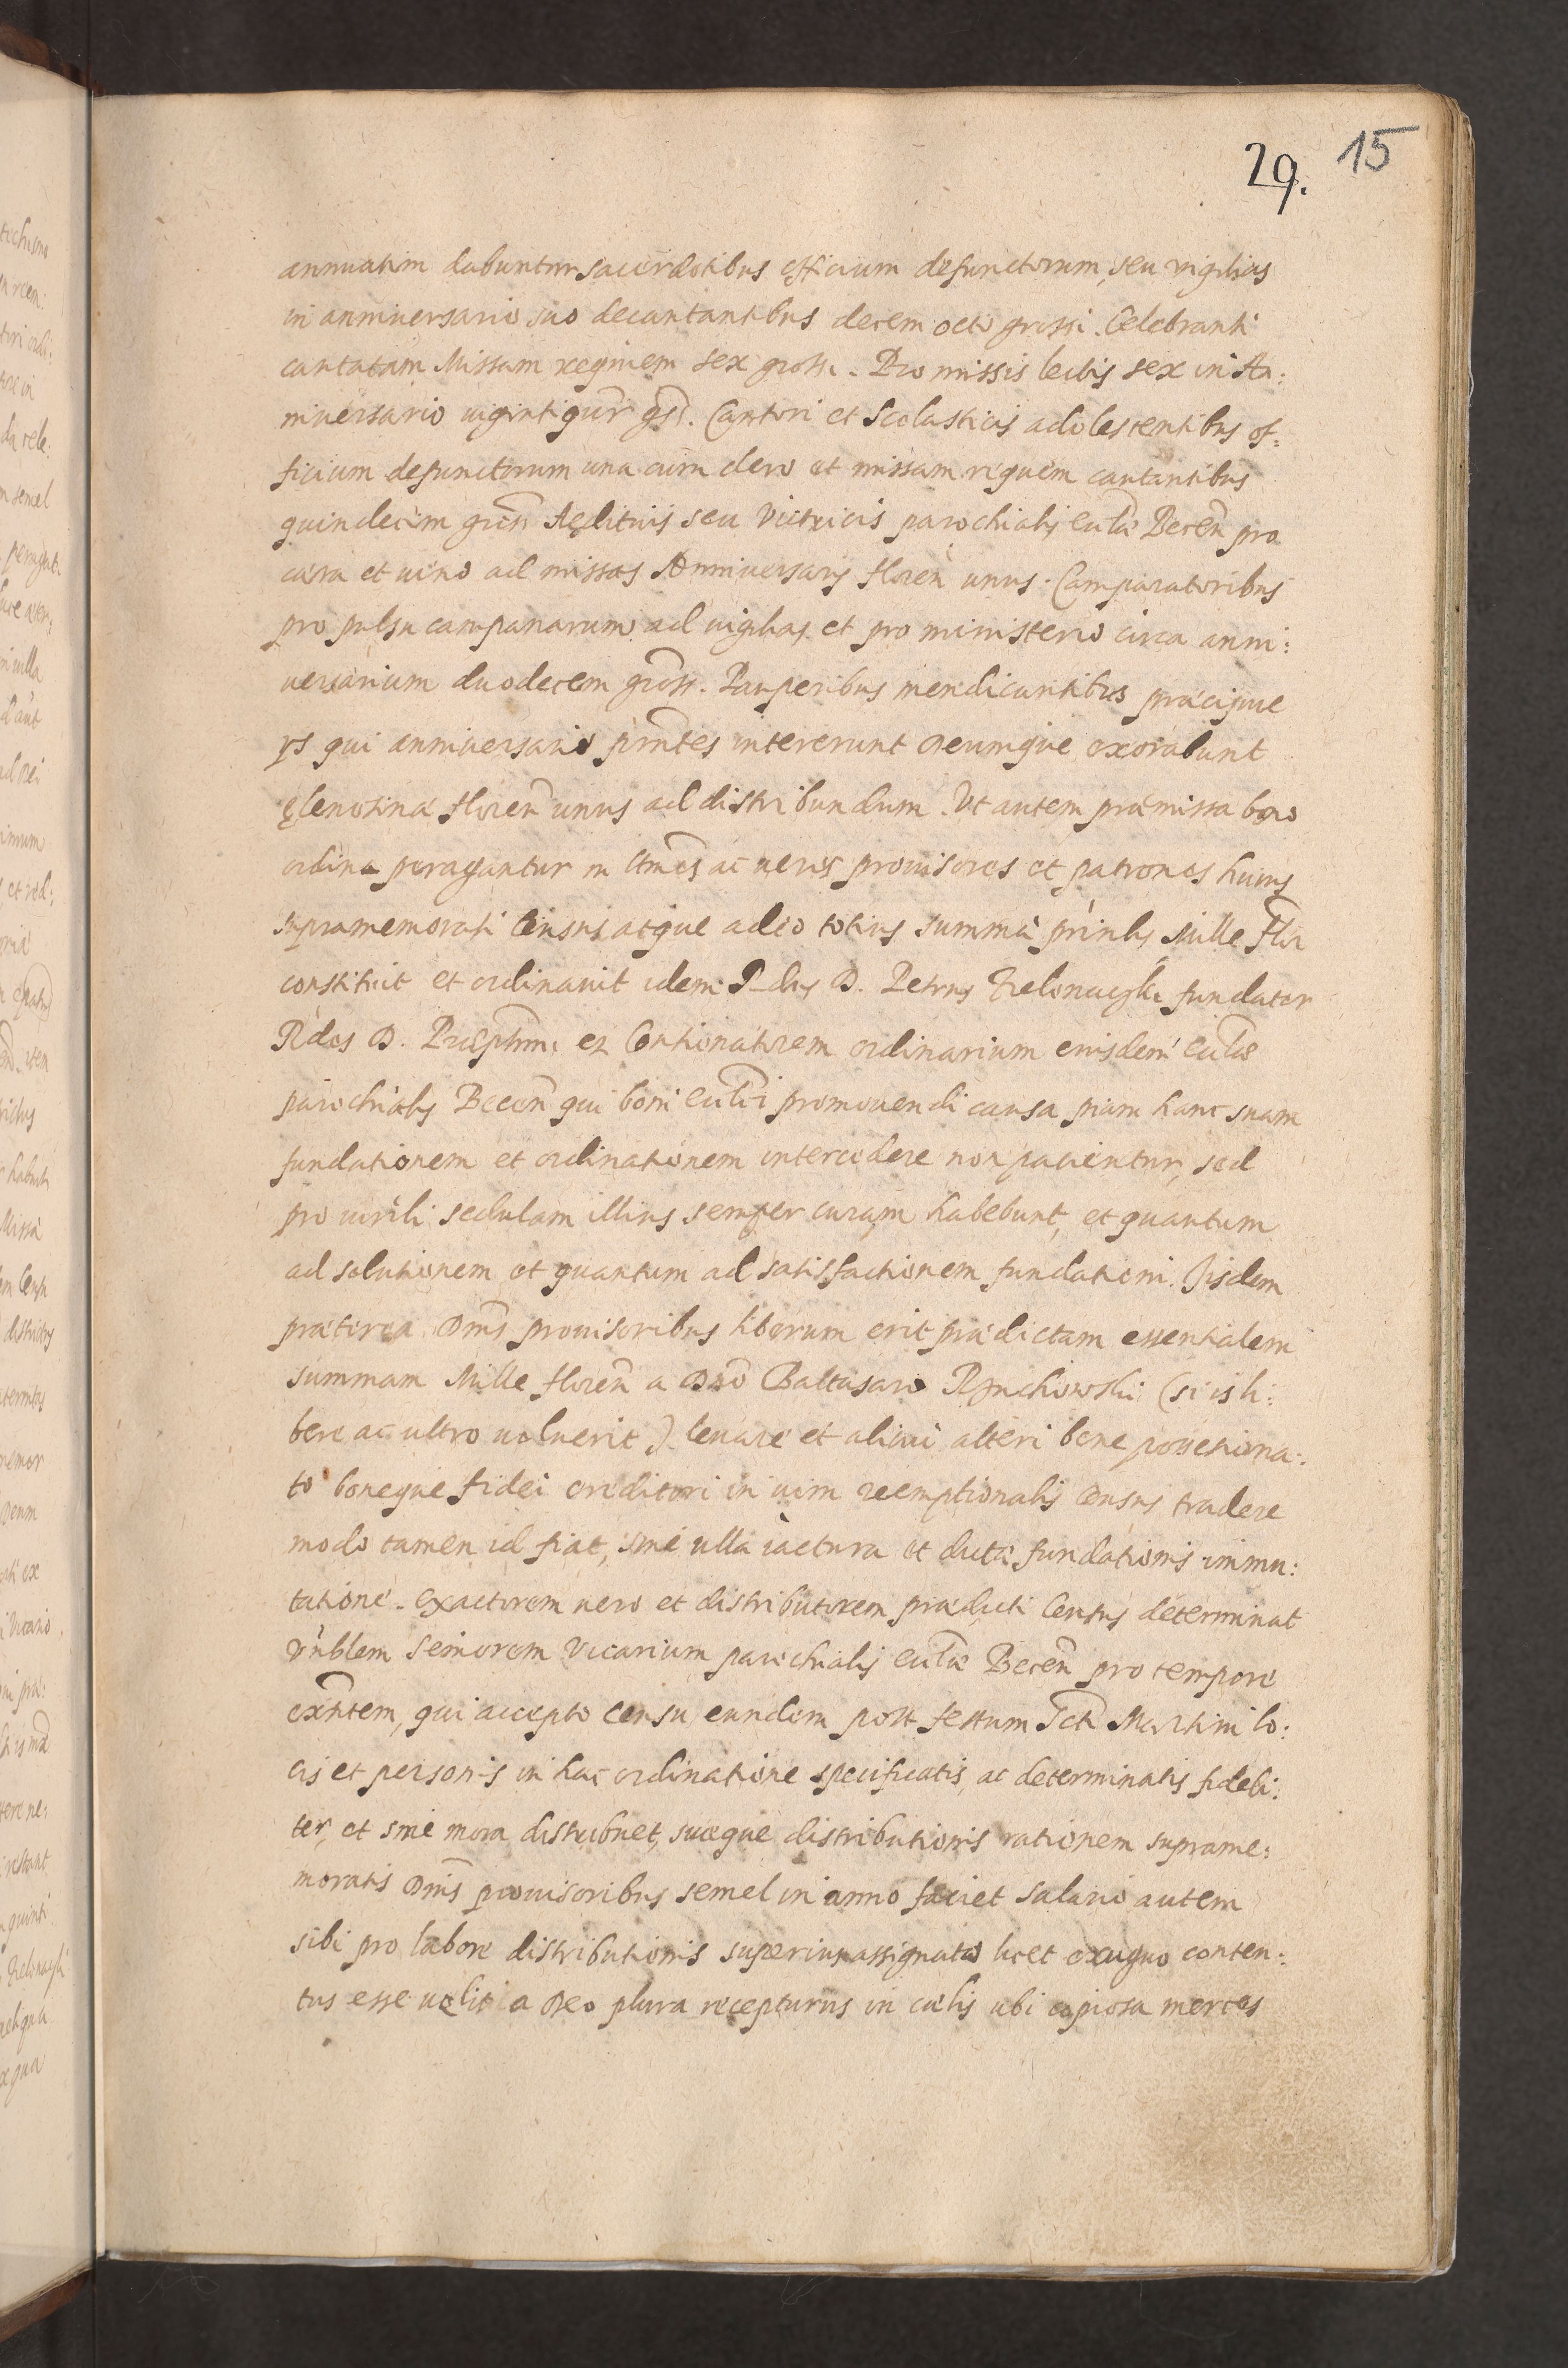 29. 15
annuatim dabuntur sacerdotibus officium defunctorum, seu vigilias
in anniversario suo decantantibus decem octo grossi. Celebranti
cantatam Missam requiem sex grossi. Pro missis lectis sex in An:
niversario viginti gr̃. Cantori et Scolasticis adolescentibus of=
ficium defunctorum una cum clero et missam requiem cantantibus
quindecim gross̃ Aedituis seu Vitricis parochialis eccl̃iæ Becen̄ pro
cæra et uino ad missas Anniversarÿ floren̄ unus. Campanatoribus
pro pulsu campanarum ad uigilias et pro ministerio circa anni:
uersarium duodecem gross̃. Pauperibus mendicantibus præcipue
ys qui anniuersario præn̄tes intererunt Deumque exorabunt
elemosina floren̄ unus ad distribundum. Vt autem præmissa bono
ordine peragantur in ac ueros prouisores et patronos huius
supramemorati Census atque adeo totius summæ prin̄lis Mille flor̃
constituit et ordinauit idem R-dus D. Petrus Zielonaczki fundator
R̃dos D. Præp̃tum et Contionatorem ordinarium eiusdem eccl̃iæ
parochialis Becen̄ qui boni eccl̃ici promouendi causa piam hanc suam
fundationem et ordinationem intercidere non patientur, sed
pro uirili sedulam illius semper curam habebunt, et quantum
ad solutionem et quantum ad satisfactionem fundationi. Iisdem
præterea Dn̄is prouisoribus liberum erit prædictam essentialem
summam Mille floren̄ a Dno Baltasaro Rynchowski (si is li:
bere ac ultro uoluerit) leuare et alicui alteri bene possessiona:
to boneque fidei creditori in uim reemptionalis Census tradere
modo tamen id fiat, sine ulla iactura et dictæ fundationis immu:
tatione. Exactorem uero et distributorem prædicti Census determinat
Vn̄blem Seniorem Vicarium parochialis eccl̃iæ Becen̄ pro tempore
exn̄tem, qui accepto censu eundem post festum Scti Martini lo:
cis et personis in hac ordinatione specificatis, ac determinatis fideli:
ter, et sine mora distribuet, suæque distributionis rationem suprame:
moratis Dn̄is prouisoribus semel in anno faciet Salario autem
sibi pro labore distributionis superius assignato licet exiguo conten:
tus esse uelit a Deo plura recepturus in cælis ubi copiosa merces